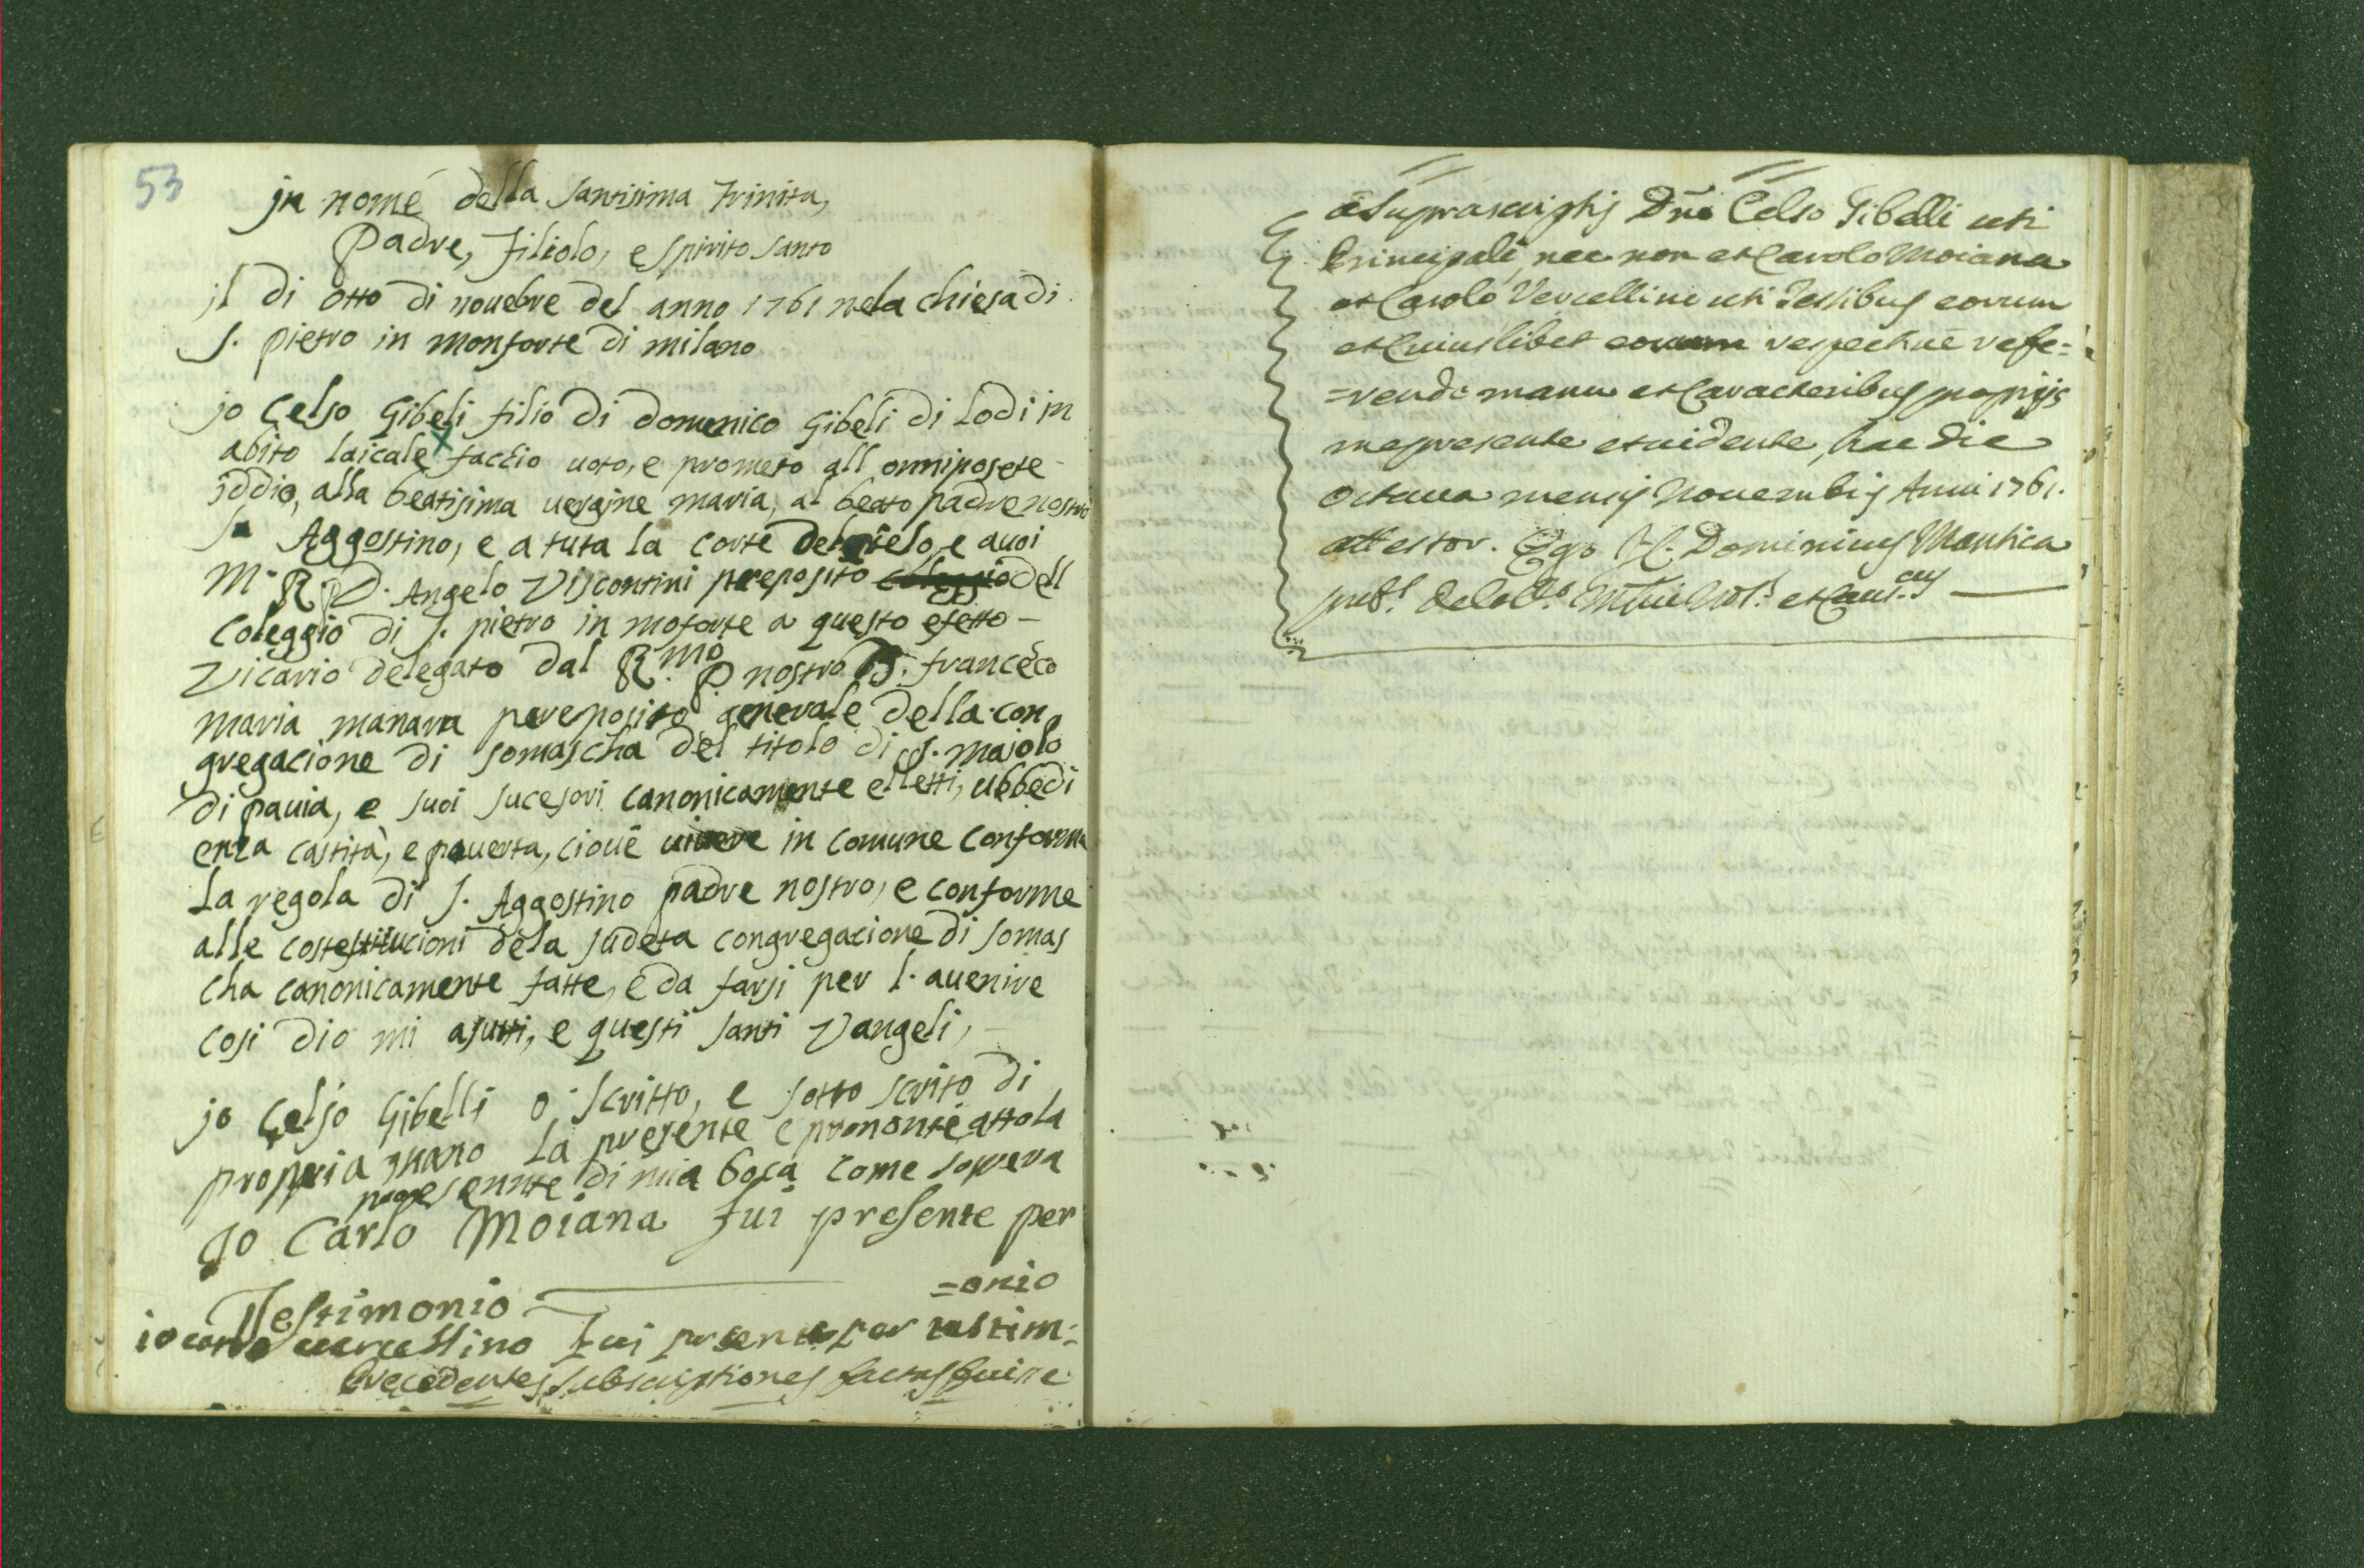 53
jn nome della santisima trinita,
Padre, filiolo, e spirito santo
jl di otto di nouebre del anno 1761 nela chiesa di
S. pietro in monforte di milano
jo Celso Gibeli filio di domenico Gibeli di Lodi in
abito laicale faccio uoto, e prometo all onniposete
iddio, alla beatisima uergine maria, al beato padre nostro
Aggostino, e a tuta la corte del cielo, e auoi
M. R. P. D. Angelo Viscontini preposito coleggio dell
coleggio di S. pietro in moforte a questo efetto -
Vicario delegato dal R.mo P. nostro D. francesco
maria manara pereposito generale della con
gregacione di somascha del titolo di S. majolo
di pauia, e suoi sucesori canonicamente elletti, ubbedi
enza castità, e pouerta, cioue uiuere in comune conforme
La regola di S. Aggostino padre nostro, e conforme
alle costestitucioni dela sudeta congregacione di somas
cha canonicamente fatte, e da farsi per l. auenire
cosi dio mi ajutti, e questi santi Vangeli,
jo Celso Gibelli o scritto, e sotto scrito di
propria mano la presente e prononcie attola
presente di mia boca come sopra
Jo Carlo Moiana fui presente per
Testimonio
=onio
io carlo uercellino fui presente per testim:
Precedentes subscriptiones factas fuisse
à Suprascriptis Dno Celso Gibelli uti
Principali, nec non et Carolo Moiana
et Carolo Vercellino uti Testibus eorum
et Cuiuslibet eorum respectiue refe=
=rendo manu et Caracteribus proprijs
me presente et uidente, hac die
octaua mensis Nouembris Anni 1761.
attestor. Ego J. Dominicus Mantica
pub.s